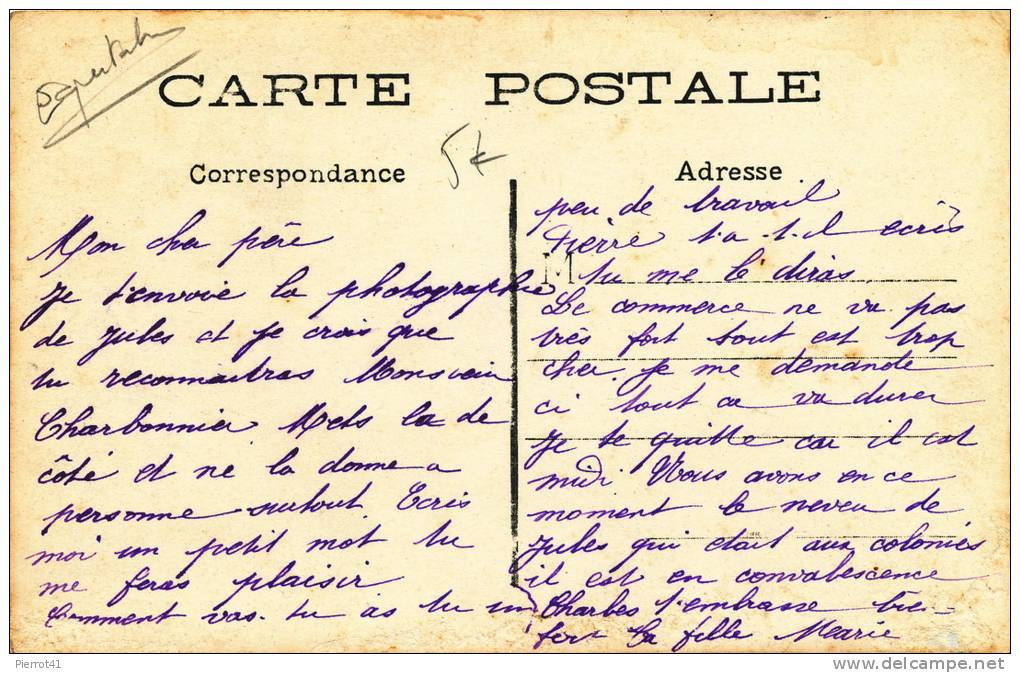 CARTE POSTALE
5 €
Correspondance
Mon cher père
Je t'envoie la photographie
de Jules et je crois que
tu reconnaitras Monsieur
Charbonnier Mets la de
côté et ne la donne a
personne surtout. Ecris
moi un petit mot tu
me feras plaisir
Comment vas-tu as tu un
Adresse
peu de travail
Pierre t-a-t-il ecris
M
tu me le diras
Le commerce ne va pas
très fort tout est trop
cher je me demande
ci tout ca va durer
Je te quitte car il est
midi Nous avons en ce
moment le neveu de
Jules qui etait aux colonies
il est en convalescence
Charles t'embrasse bien
fort Ta fille Marie
Pierrot41
http://www.delcampe.net